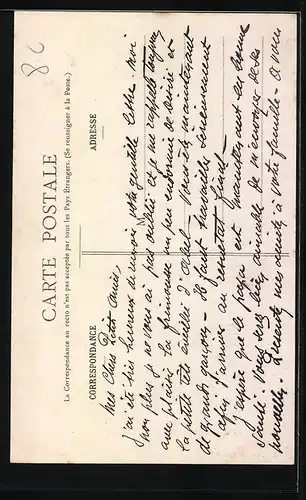 8c
CARTE POSTALE
La Correspondance au recto n'est pas acceptée par tous les Pays Étrangers. (Se renseigner à la Poste.)
CORRESPONDANCE
ADRESSE
Mes Chers Petits amis,
J'ai été très heureux de recevoir votre gentille lettre. moi
non plus je ne vous ai pas oublié et je me rappelle toujours
avec plaisir la frimousse un peu de Désiré et
la petite tête éveillée d' Vous êtes maintenant
de grands garçons – Il faut travailler sérieusement
afin d'arriver au résultat final –
J'espère que le papa est maintenant en bonne
santé. Vous serez bien aimable de m'envoyer de ses
nouvelles. Présentez mes à votre famille – à vous